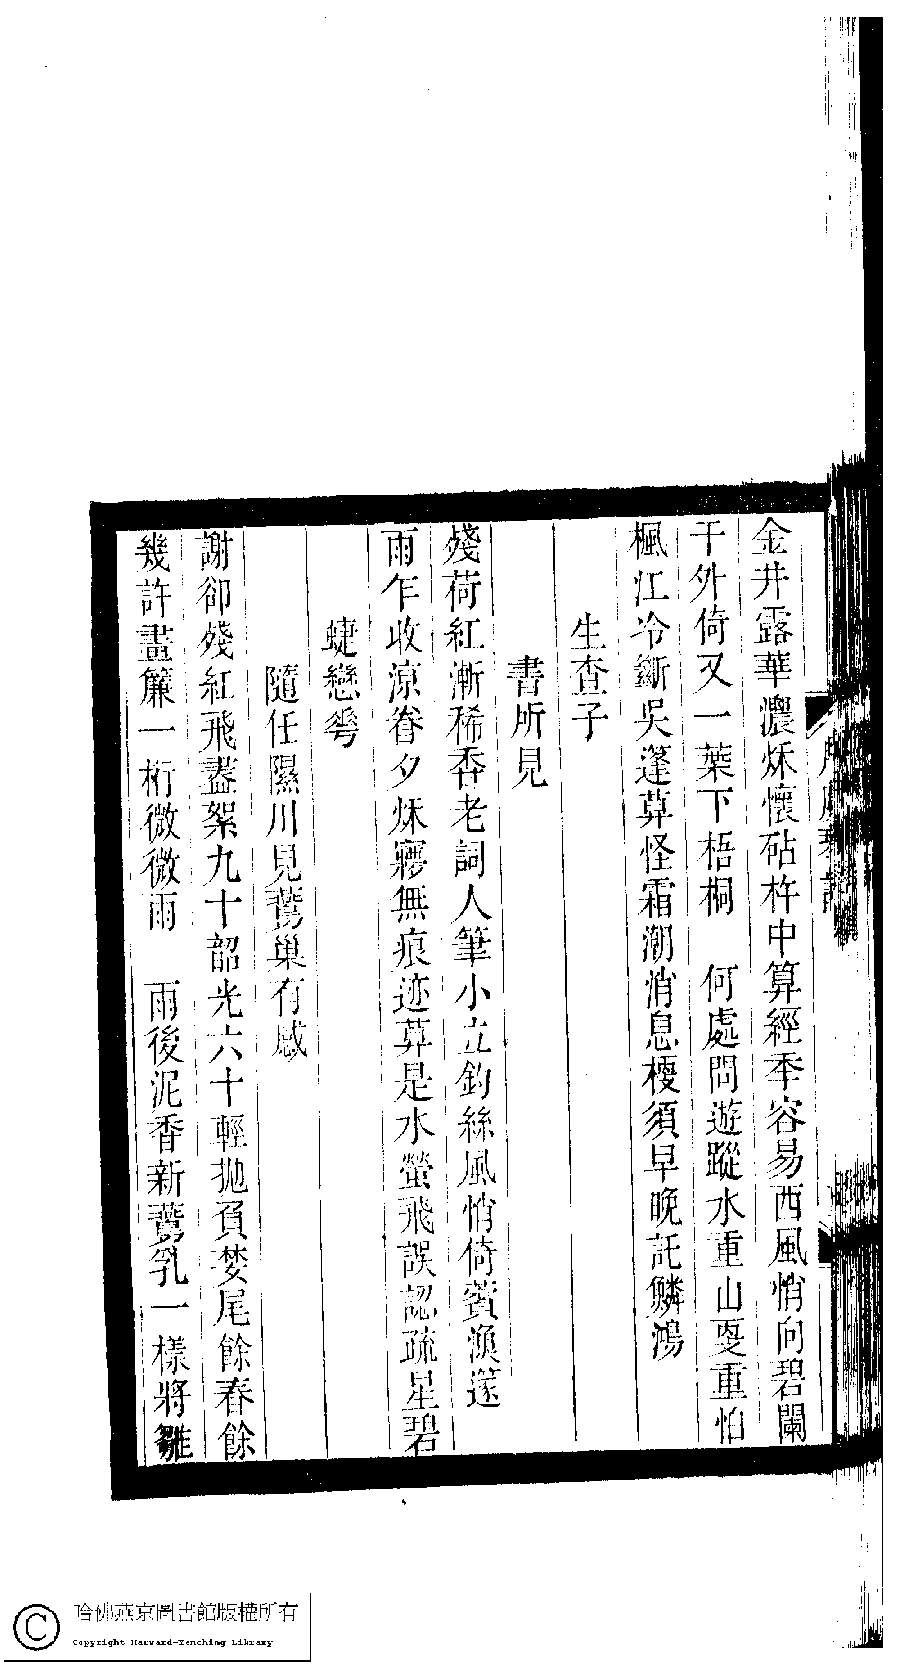 金井露華濃秌懷砧杵中算經秊容易西風悄向碧闌
干外倚又一葉下梧桐　何處問遊蹤水重山更重怕
楓江冷斷吳篷莫怪霜潮消息梗須早晚託鱗鴻
生查子
書所見
殘荷紅漸稀香老詞人筆小立釣絲風悄倚賓漁蓬
雨乍收涼眷夕秌寢無痕迹算是水螢飛誤認疏星碧
蜨戀
隨任隰川見鷰巢有感
謝卻殘紅飛盡絮九十韶光六十輕拋負婪尾餘春餘
幾許畫簾一桁微微雨　雨後泥香新鷰乳一樣將雛
哈佛燕京圖書館版權所有
Copyright Harvard-Yenching Library